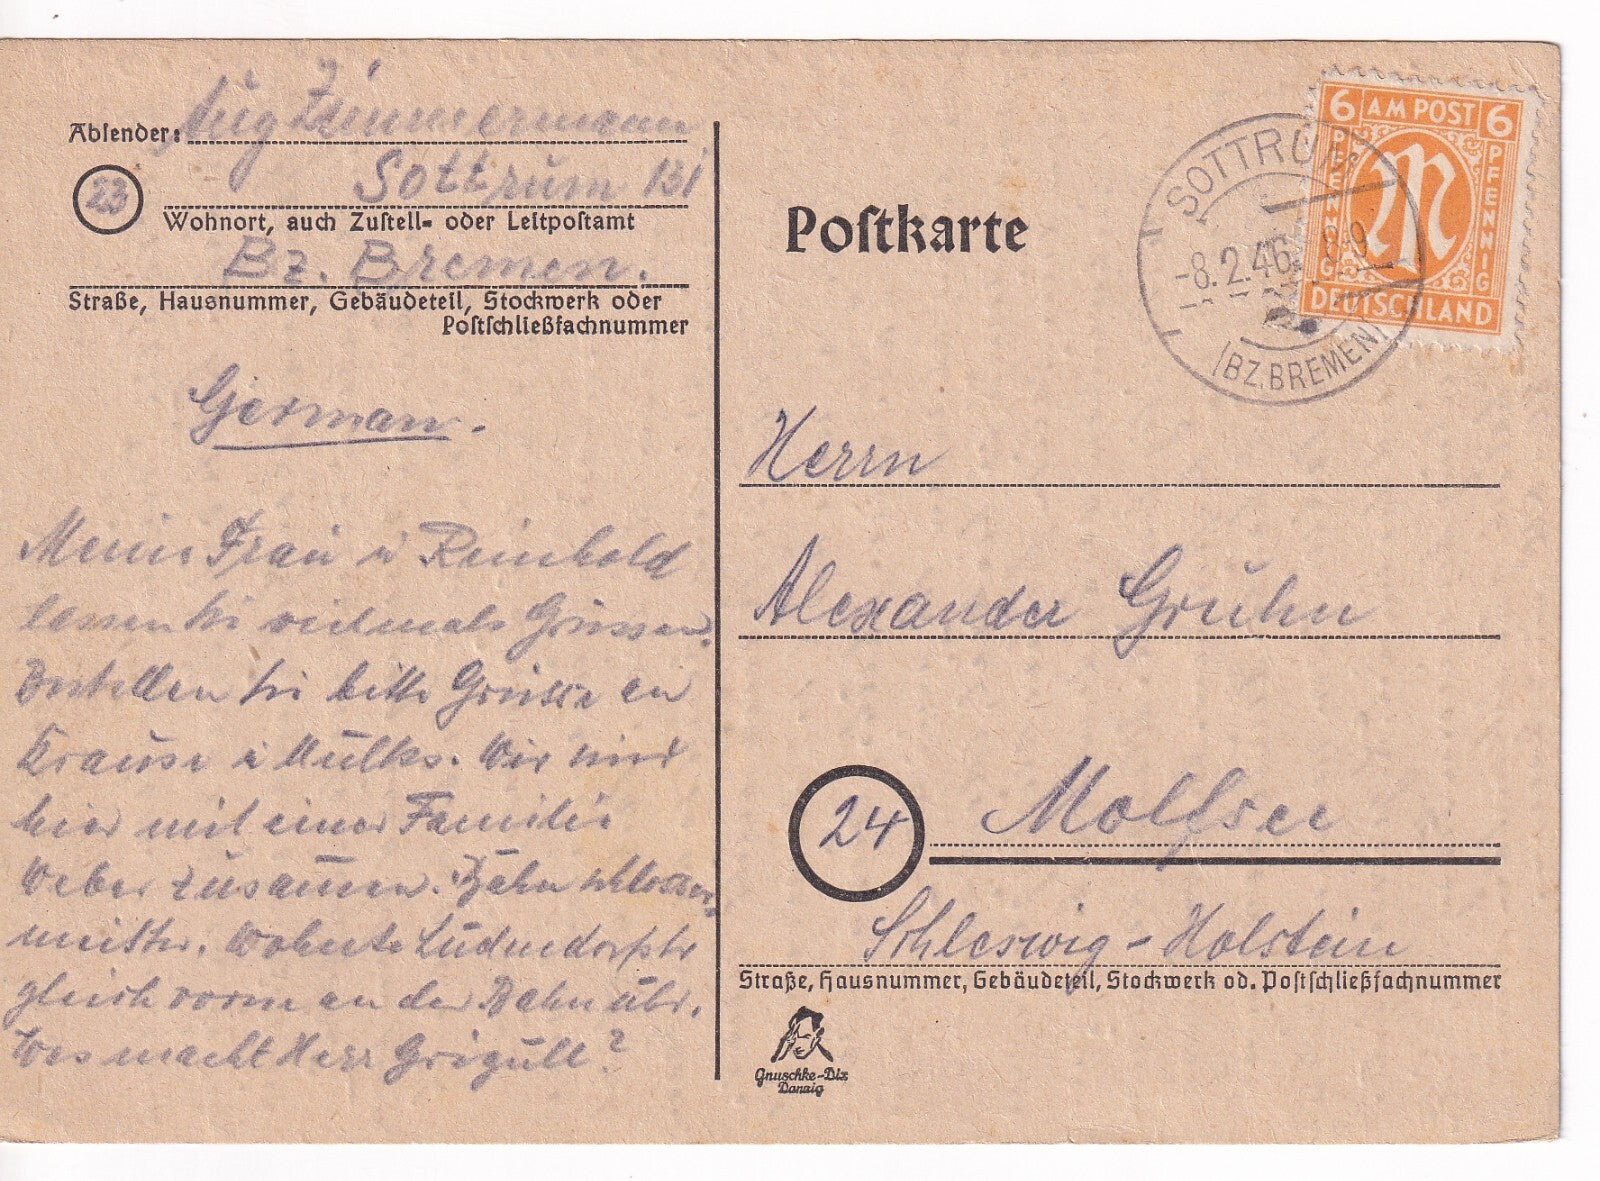 Absender: Aug Zimmermann
23
Sottrum 131
Wohnort, auch Zustell- oder Leitpostamt
Bz. Bremen.
Straße, Hausnummer, Gebäudeteil, Stockwerk oder
Postschließfachnummer
German.
Meine Frau u Reinhold
lassen sie vielmals Grüssen.
Bestellen sie bitte Grüsse an
Krause u Mülks. Wir sind
hier mit einer Familie
Weber zusamen. Bahn
meister. Wohnte Ludendorfstr
gleich vorn an der Bahn übr.
Was macht Herr Grigull?
Postkarte
6 AM POST 6
PFENNIG
PFENNIG
M
DEUTSCHLAND
SOTTRUM
-8.2.46. 8-9
(BZ. BREMEN)
Herrn
Alexander Gruhn
24
Molfsee
Schleswig-Holstein
Straße, Hausnummer, Gebäudeteil, Stockwerk od. Postschließfachnummer
Gnuschke-Dlz
Danzig